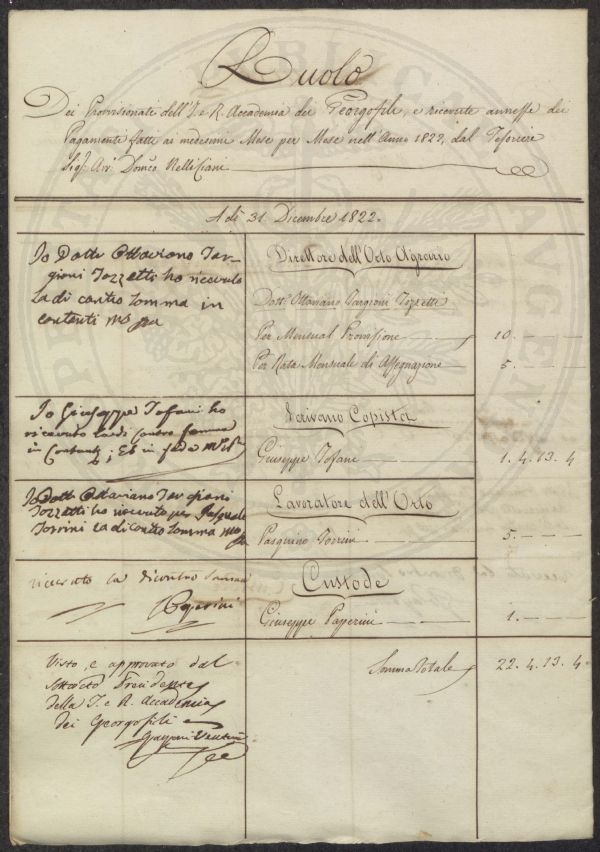 Ruolo
Dei Provisionati dell'I. e R. Accademia dei Georgofili, e ricevute annesse dei
Pagamenti fatti ai medesimi Mese per Mese nell'Anno 1822, dal Tesoriere
Sig.r Avv.o Dom.co Nelli Ciani
A dì 31. Dicembre 1822.
Io Dott.e Ottaviano Tar-
gioni Tozzetti ho ricevuto
la di contro somma in
contanti
Direttore dell'Orto Agrario
Dott.e Ottaviano Targioni Tozzetti
Per Mensual Provisione 10. — — —
Per Rata Mensuale di Assegnazione 5. — — —
Io Giuseppe Tofani ho
ricevuto la di contro somma
in Contanti; Ed in fede
Scrivano Copista
Giuseppe Tofani 1. 4. 13. 4
Io Dott.e Ottaviano Targioni
Tozzetti ho ricevuto per Pasquale
Torrini la di contro somma
Lavoratore dell'Orto
Pasquino Torrini 5. — — —
ricevuto la dicontro somma
Paperini
Custode
Giuseppe Paperini 1. — — —
Visto, e approvato dal
Sottoscritto Presidente
della I. e R. Accademia
dei Georgofili
Somma Totale 22. 4. 13. 4